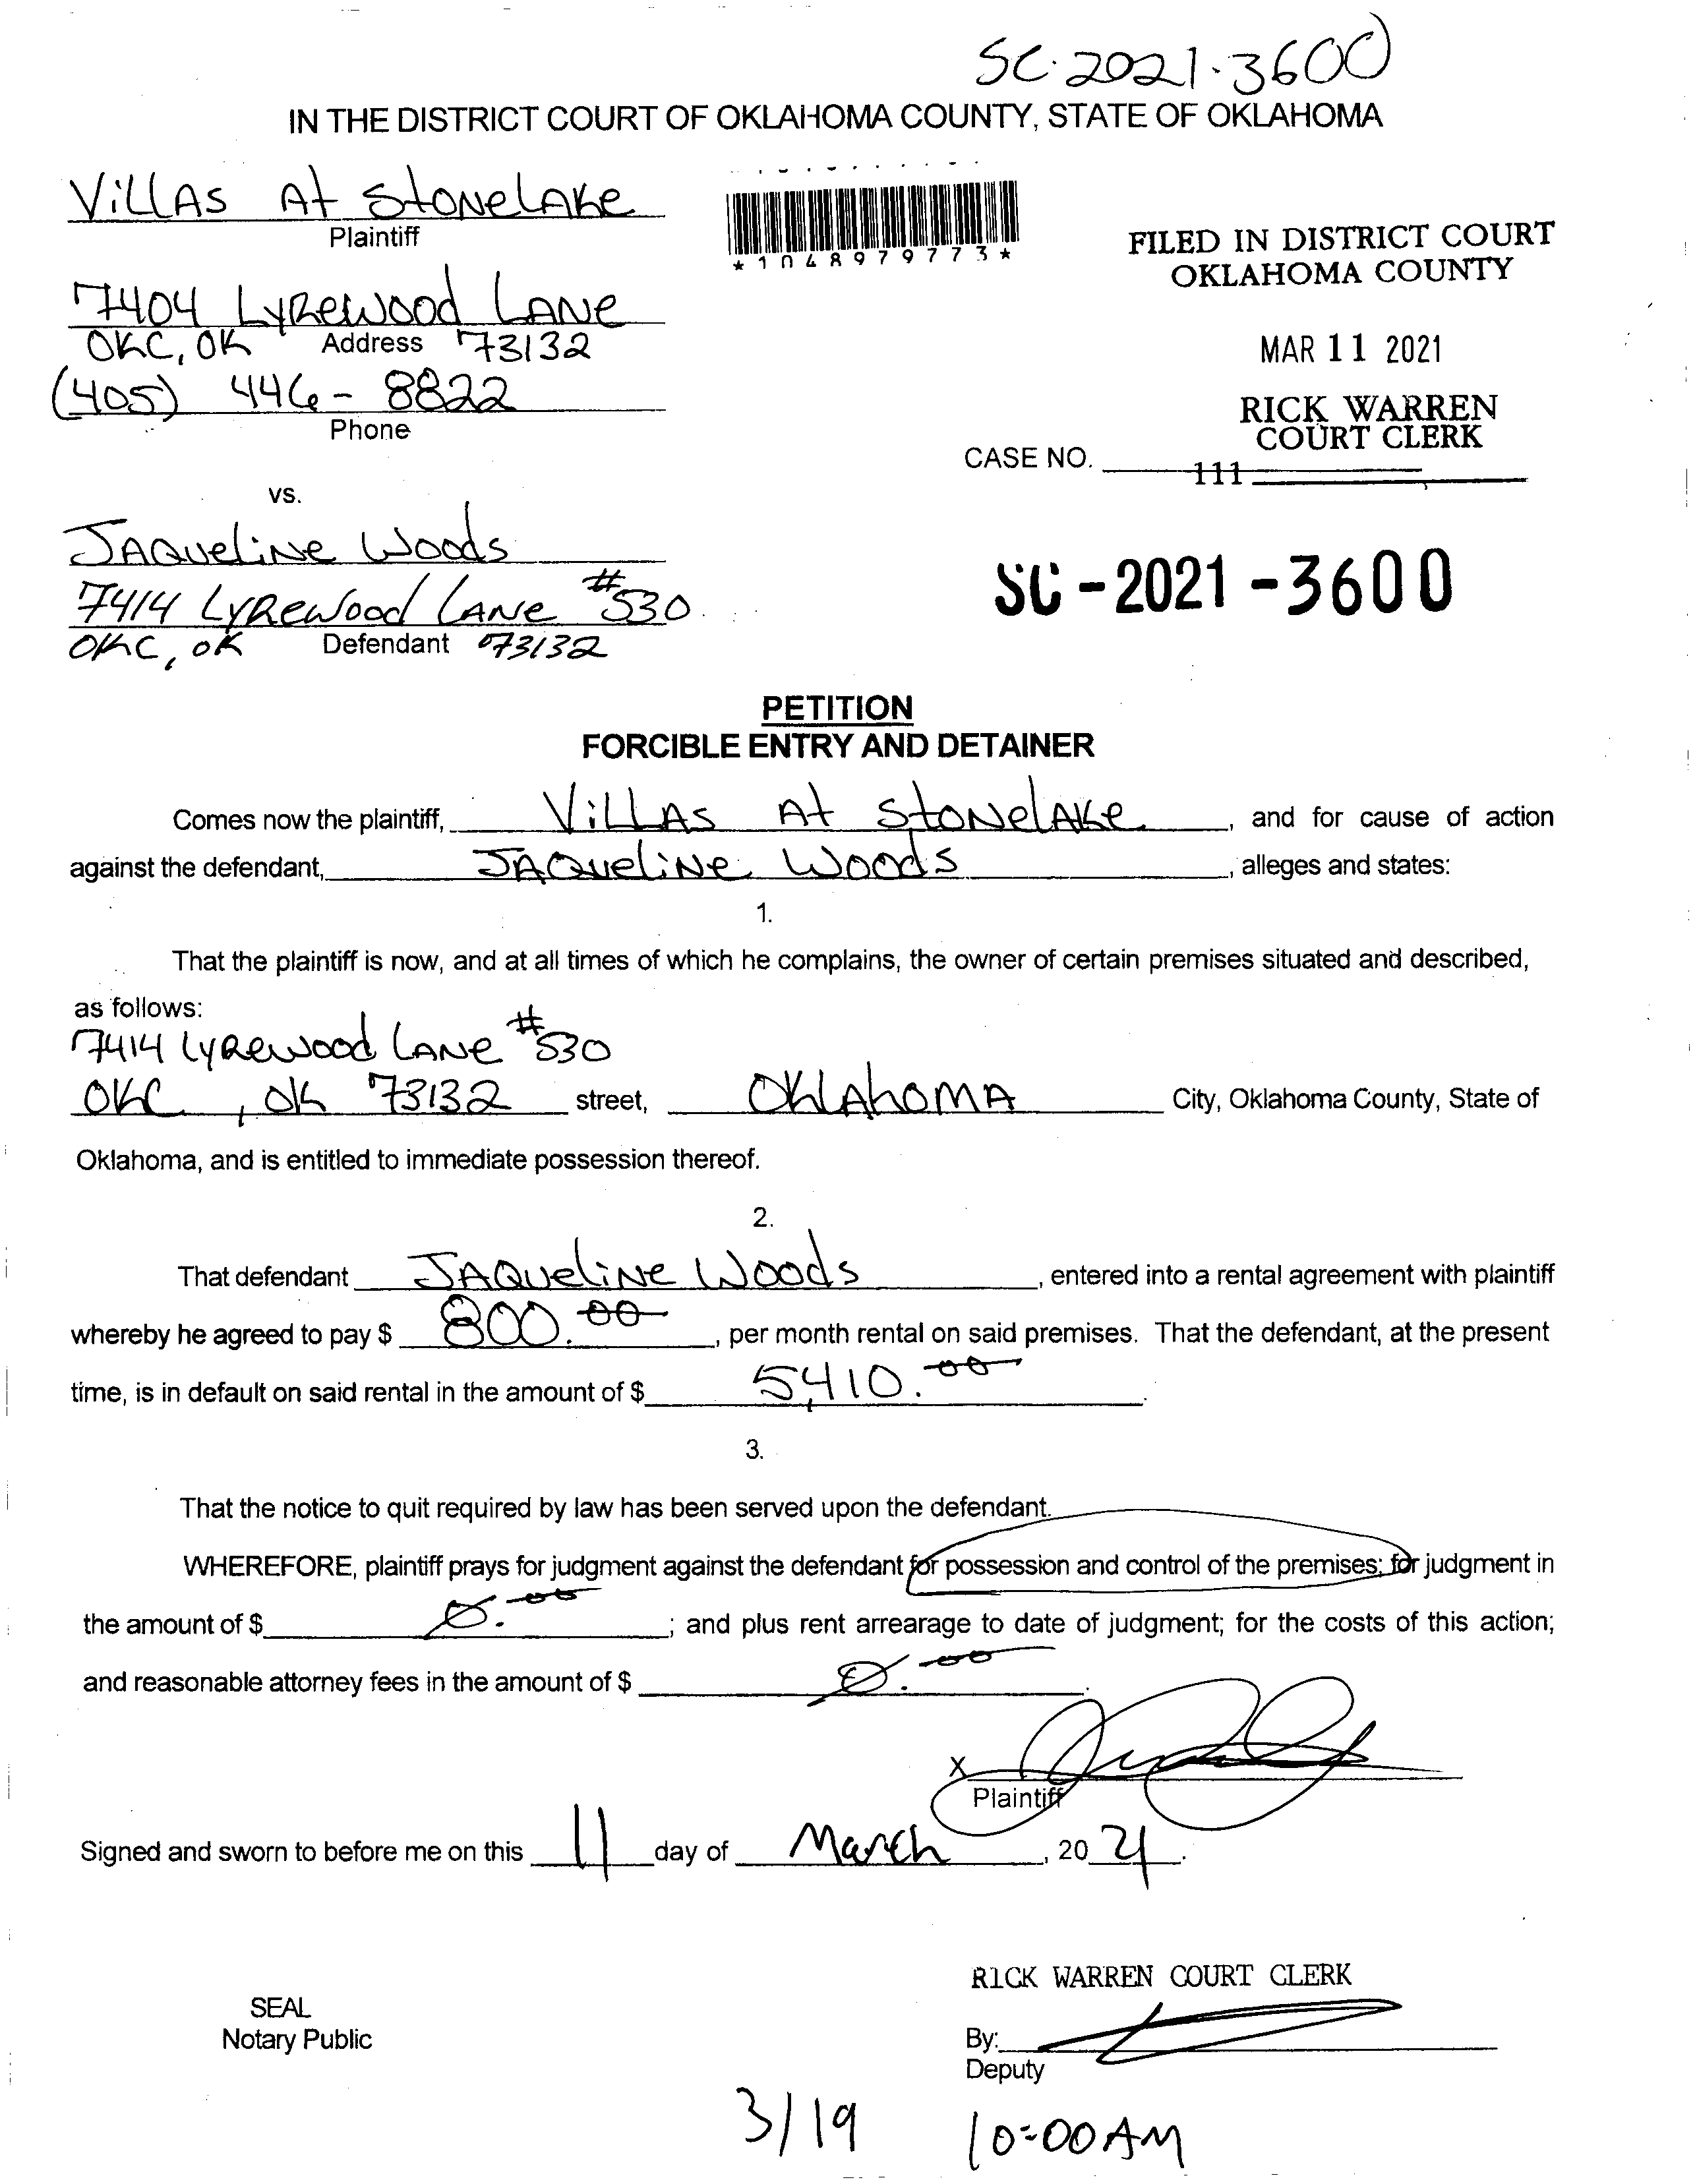 SC-2021-3600
IN THE DISTRICT COURT OF OKLAHOMA COUNTY, STATE OF OKLAHOMA
Villas At Stonelake
Plaintiff
*1048979773*
FILED IN DISTRICT COURT
OKLAHOMA COUNTY
7404 Lyrewood Lane
OKC, OK Address 73132
MAR 11 2021
(405) 446-8822
Phone
RICK WARREN
COURT CLERK
CASE NO.
111
vs.
Jaqueline Woods
7414 Lyrewood Lane #530
OKC, OK Defendant 73132
SC-2021-3600
PETITION
FORCIBLE ENTRY AND DETAINER
Comes now the plaintiff, Villas At Stonelake, and for cause of action
against the defendant, Jaqueline Woods, alleges and states:
1.
That the plaintiff is now, and at all times of which he complains, the owner of certain premises situated and described,
as follows:
7414 Lyrewood Lane #530
OKC, OK 73132 street, Oklahoma City, Oklahoma County, State of
Oklahoma, and is entitled to immediate possession thereof.
2.
That defendant Jaqueline Woods, entered into a rental agreement with plaintiff
whereby he agreed to pay $ 800.00, per month rental on said premises. That the defendant, at the present
time, is in default on said rental in the amount of $ 5,410.00.
3.
That the notice to quit required by law has been served upon the defendant.
WHEREFORE, plaintiff prays for judgment against the defendant for possession and control of the premises; for judgment in
the amount of $ 0.00; and plus rent arrearage to date of judgment; for the costs of this action;
and reasonable attorney fees in the amount of $ 0.00.
X
Plaintiff
Signed and sworn to before me on this 11 day of March, 2021.
RICK WARREN COURT CLERK
SEAL
Notary Public
By:
Deputy
3/19 10:00 AM